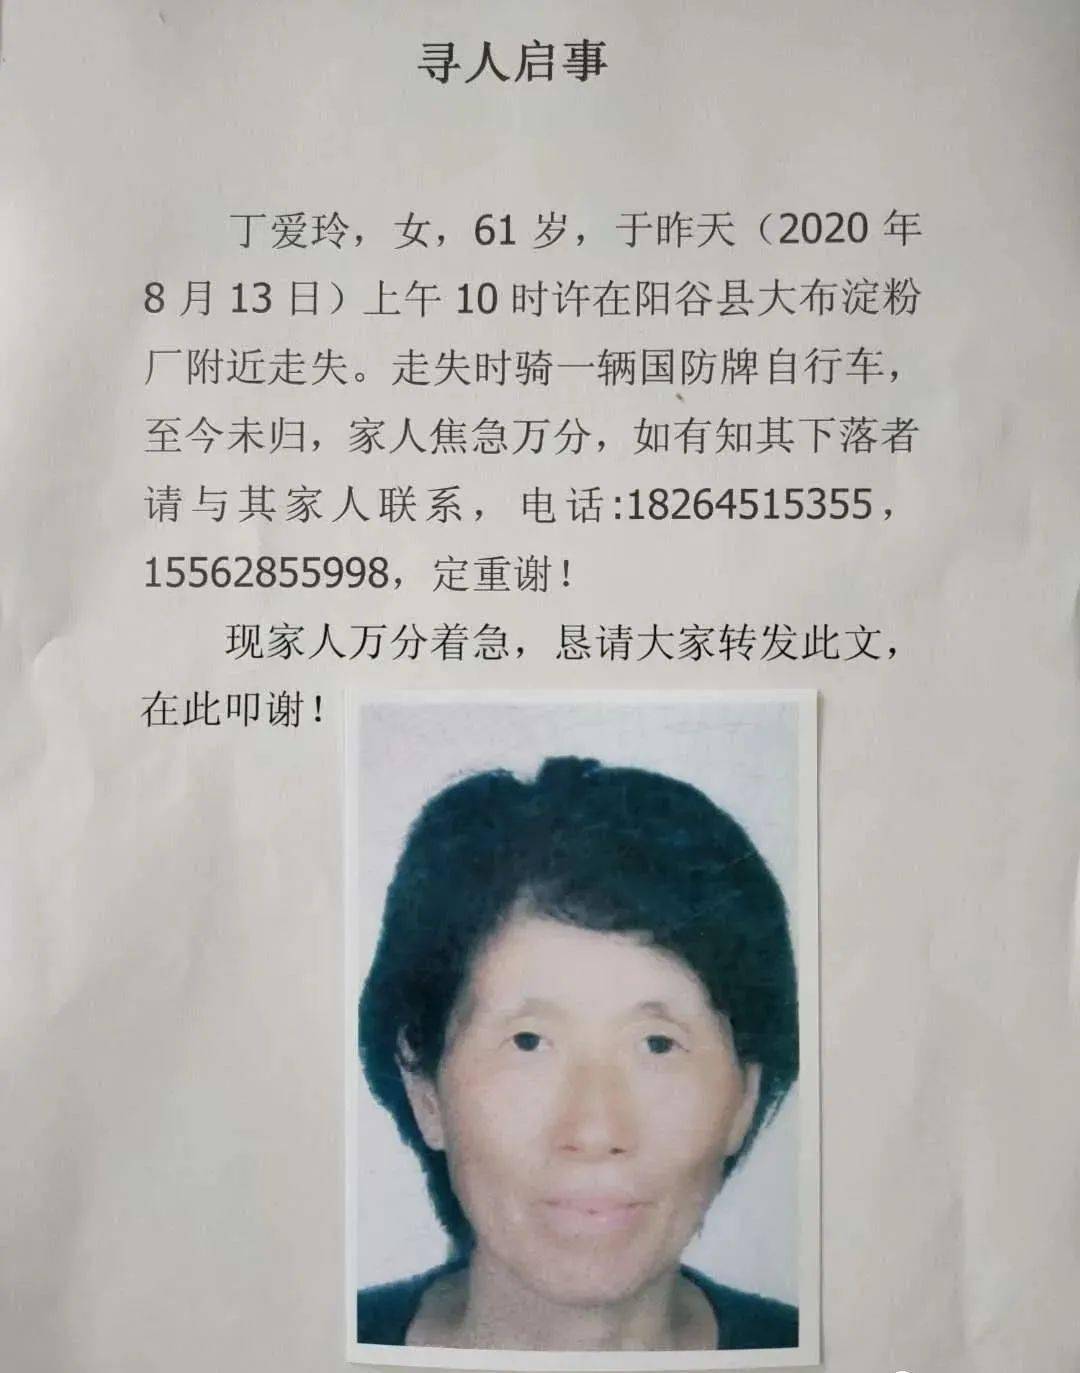 寻人启事
丁爱玲，女，61 岁，于昨天（2020 年
8 月 13 日）上午 10 时许在阳谷县大布淀粉
厂附近走失。走失时骑一辆国防牌自行车，
至今未归，家人焦急万分，如有知其下落者
请与其家人联系，电话:18264515355，
15562855998，定重谢！
现家人万分着急，恳请大家转发此文，
在此叩谢！